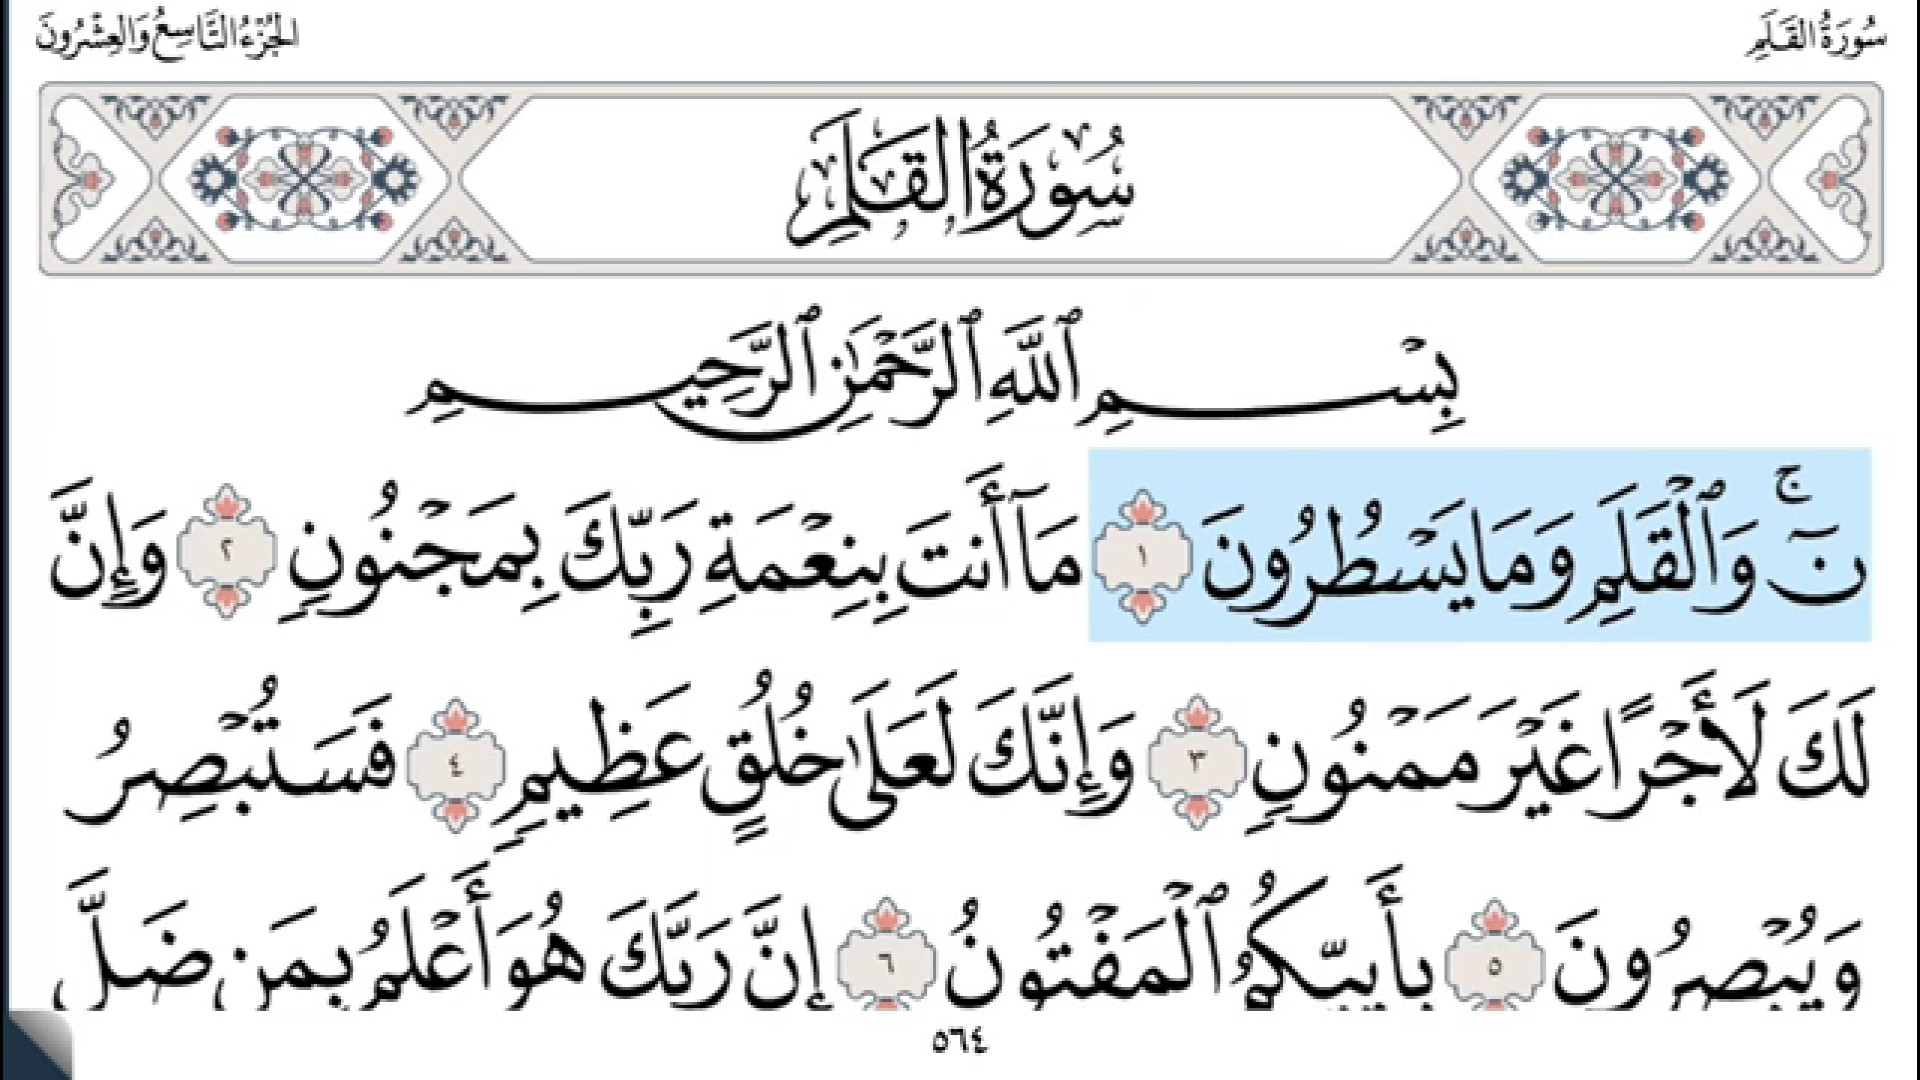 سُورَةُ القَلَمِ
الجُزْءُ التَّاسِعُ وَالعِشْرُونَ
سُورَةُ القَلَمِ
بِسْمِ ٱللَّهِ ٱلرَّحْمَٰنِ ٱلرَّحِيمِ
نٓۚ وَٱلْقَلَمِ وَمَا يَسْطُرُونَ ١ مَآ أَنتَ بِنِعْمَةِ رَبِّكَ بِمَجْنُونٍ ٢ وَإِنَّ
لَكَ لَأَجْرًا غَيْرَ مَمْنُونٍ ٣ وَإِنَّكَ لَعَلَىٰ خُلُقٍ عَظِيمٍ ٤ فَسَتُبْصِرُ
وَيُبْصِرُونَ ٥ بِأَييِّكُمُ ٱلْمَفْتُونُ ٦ إِنَّ رَبَّكَ هُوَ أَعْلَمُ بِمَن ضَلَّ
٥٦٤